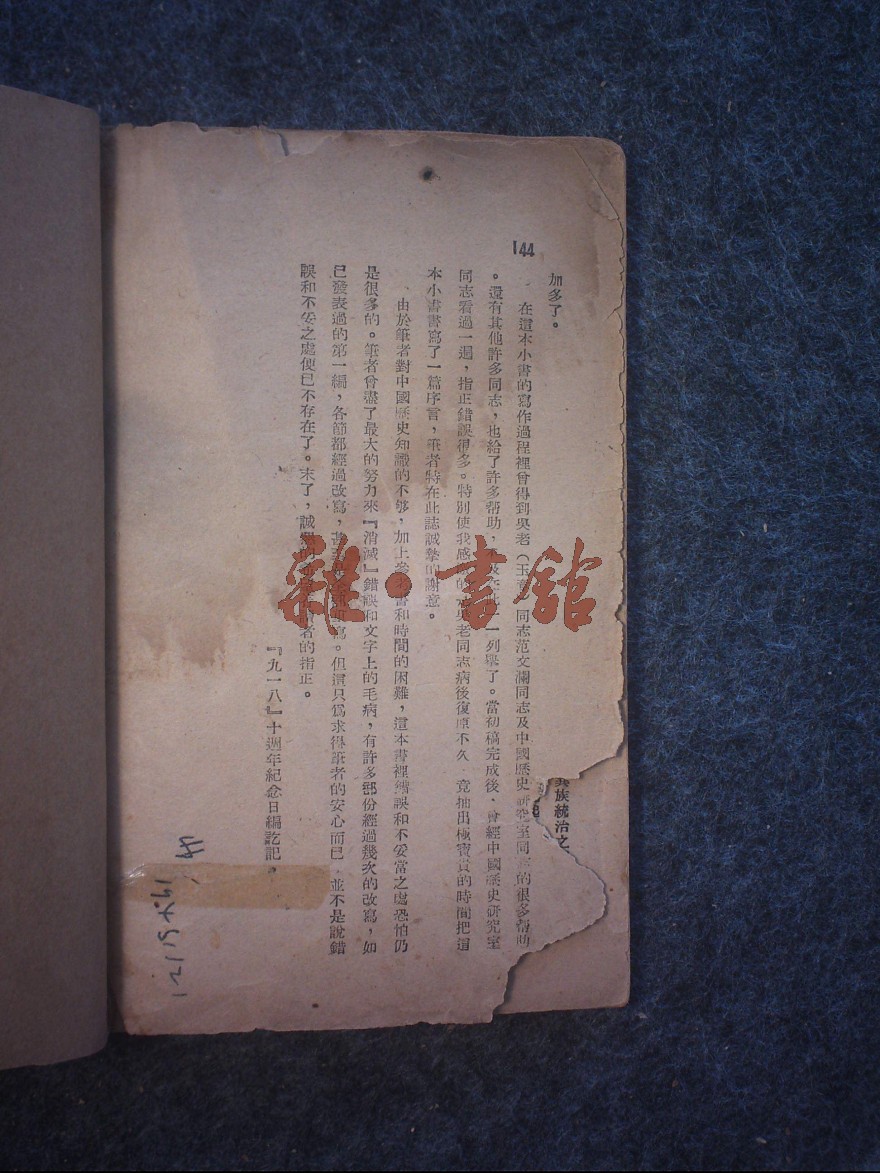 144
加多了。
在這本小書的寫作過程裡曾得到吳老(玉 同志范文瀾同志及中國歷史研究室同 的很多幫助
。還有其他許多同志,也給了許多幫助, 一列舉了。當初稿完成後,曾經中國歷史研究室
同志看過一遍,指正錯誤很多。特別使我感 的 吳老同志病後復原不久,竟抽出極寶貴的時間把這
本小書書寫了一篇序言,筆者特在此誌誠摯的謝意。
由於筆者對中國歷史知識的不够,加上參考書和時間的困難,這本書裡錯誤和不妥當之處恐怕仍
是很多的。筆者曾盡了最大的努力來『消滅』錯誤和文字上的毛病,有許多部份經過幾次的改寫,如
已發表過的第一編,各節都經過改寫, 寫。但這只爲求得筆者的安心而已,並不是說錯
誤和不妥之處便已不存在了。末了,誠 者的指正。
『九一八』十週年紀念日編訖記。
族統治之
雜·書舘